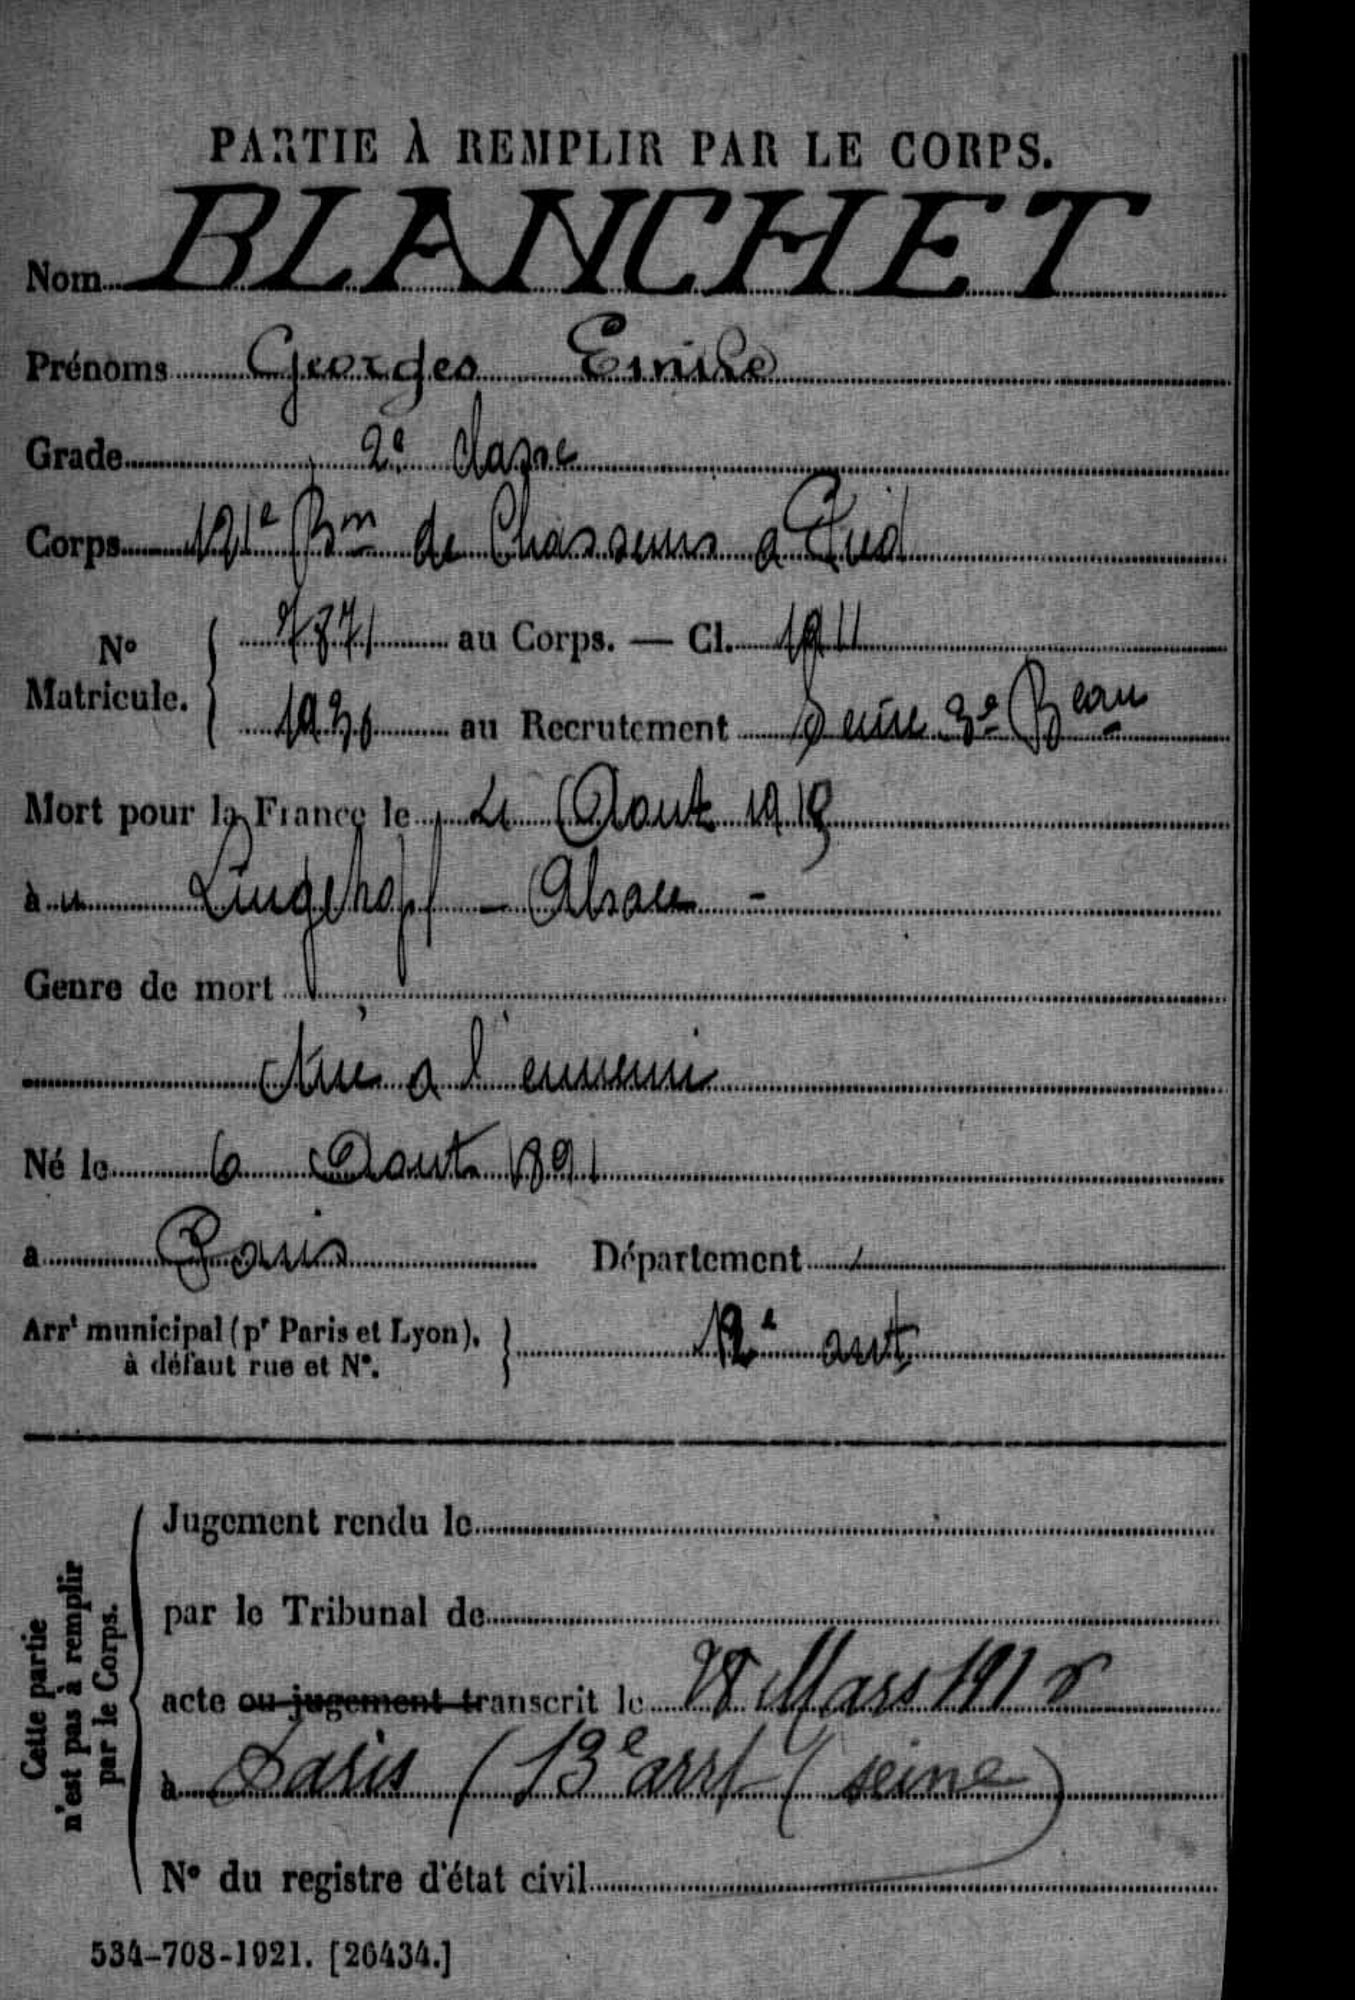 PARTIE À REMPLIR PAR LE CORPS.
Nom BLANCHET
Prénoms Georges Emile
Grade 2e Classe
Corps 121e Bon de Chasseurs a Pied
No Matricule. au Corps. — Cl. 1911
1936 au Recrutement Seine 3e Beau
Mort pour la France le Aout 1915
à u Lingekopf - Alsace -
Genre de mort
Tué a l'ennemi
Né le 6 Aout 1891
à Paris Département
Arrt municipal (pr Paris et Lyon), à défaut rue et No. 12e arrt
Cette partie n'est pas à remplir par le Corps.
Jugement rendu le
par le Tribunal de
acte ou jugement transcrit le 28 Mars 1918
à Paris (13e arrt (seine)
No du registre d'état civil
534-708-1921. [26434.]